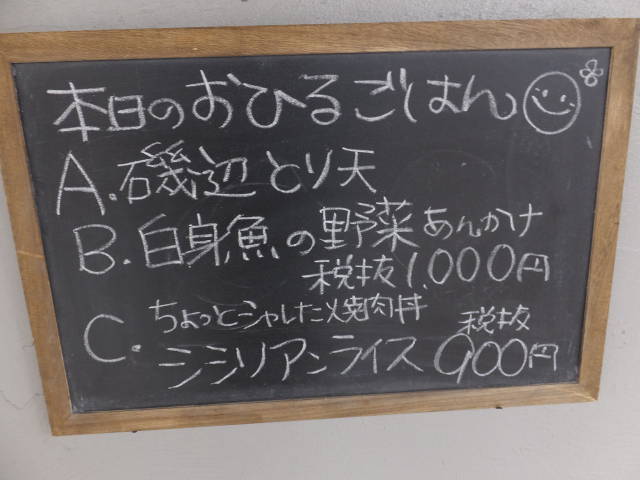 本日のおひるごはん
A.磯辺とり天
B.白身魚の野菜あんかけ
税抜1,000円
ちょっとシャレた焼肉丼
C.シシリアンライス 税抜900円